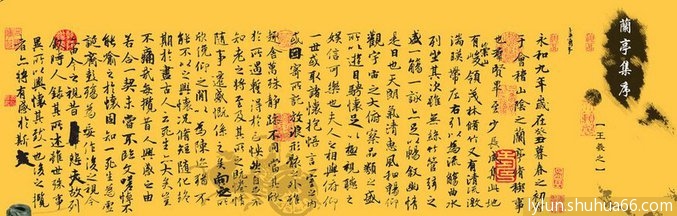 蘭亭集序
【王羲之】
永和九年歲在癸丑暮春之初會
于會稽山陰之蘭亭脩禊事
也群賢畢至少長咸集此地
有崇山峻領茂林脩竹又有清流激
湍暎帶左右引以為流觴曲水
列坐其次雖無絲竹管弦之
盛一觴一詠亦足以暢敘幽情
是日也天朗氣清惠風和暢仰
觀宇宙之大俯察品類之盛
所以遊目騁懷足以極視聽之
娛信可樂也夫人之相與俯仰
一世或取諸懷抱悟言一室之內
或因寄所託放浪形骸之外雖
趣舍萬殊靜躁不同當其欣
於所遇蹔得於己怏然自足不
知老之將至及其所之既惓情
隨事遷感慨係之矣向之所
欣俛仰之閒以為陳迹猶不
能不以之興懷況脩短隨化終
期於盡古人云死生亦大矣豈
不痛哉每攬昔人興感之由
若合一契未嘗不臨文嗟悼不
能喻之於懷固知一死生為虛
誕齊彭殤為妄作後之視今
亦由今之視昔悲夫故列
敘時人錄其所述雖世殊事
異所以興懷其致一也後之攬
者亦將有感於斯
lylunshuhua66.com